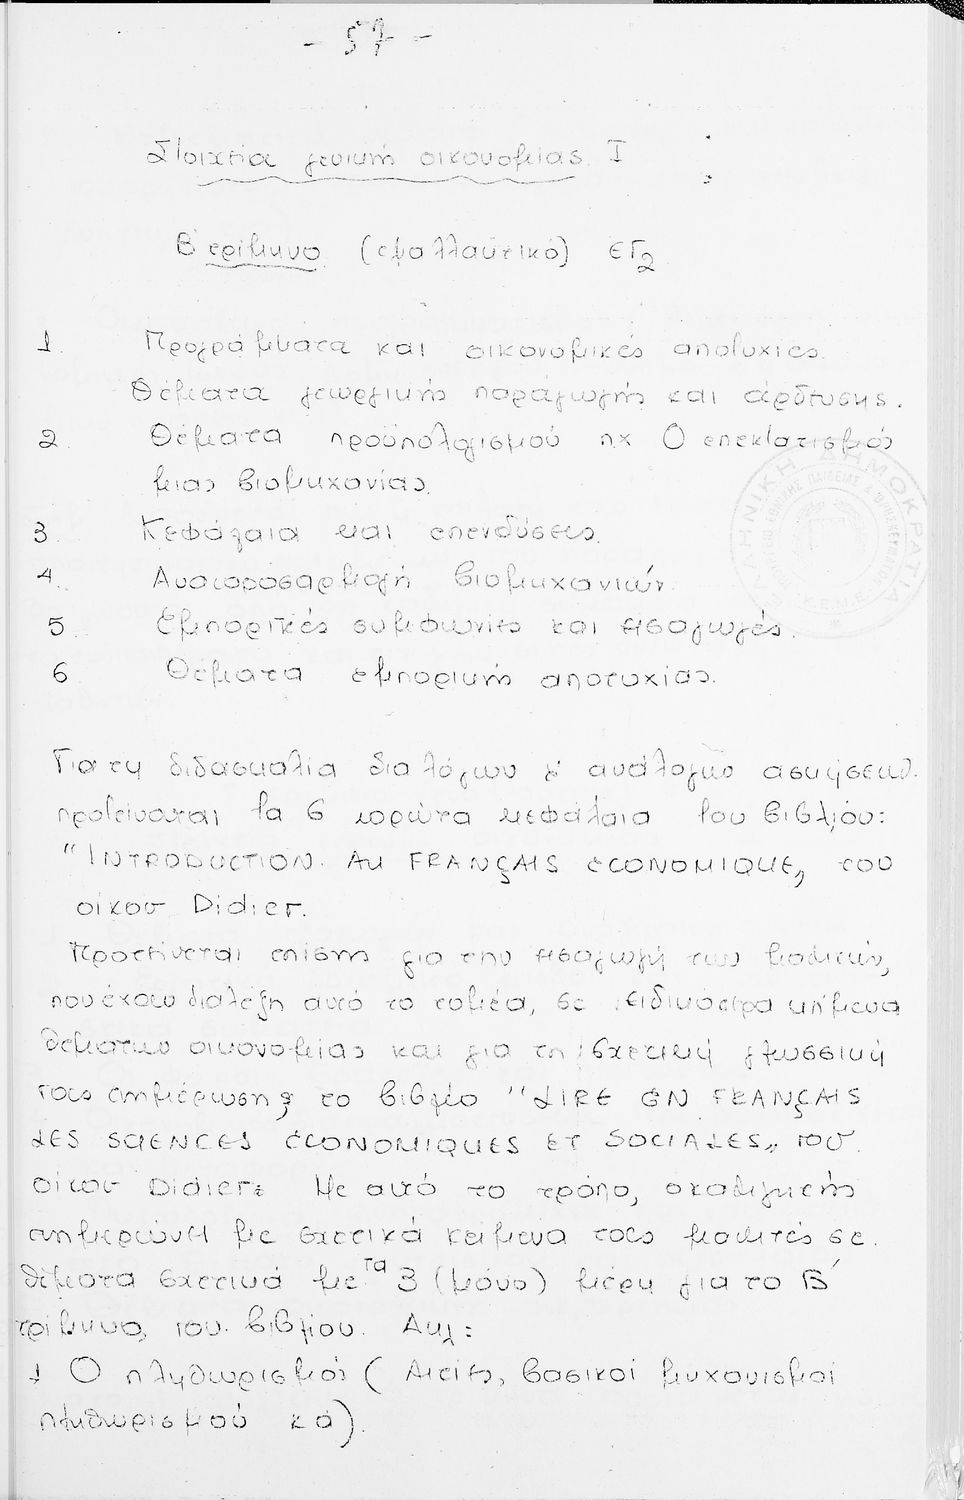 - 57 -
Στοιχεία γενικής οικονομίας I
Β' τρίμηνο (εφαλλαυτικό) ΕΓ2
1. Προγράμματα και οικονομικές αποτυχίες.
Θέματα γεωργικής παραγωγής και άρδευσης.
2. Θέματα προϋπολογισμού πχ Ο επεκτατισμός
μιας βιομηχανίας.
3. Κεφάλαια και επενδύσεις.
4. Αναπροσαρμογή βιομηχανιών.
5. Εμπορικές συμφωνίες και εισαγωγές.
6 Θέματα εμπορικής αποτυχίας.
Για τη διδασκαλία διαλόγων κ' ανάλογων ασκήσεων
προτείνονται τα 6 πρώτα κεφάλαια του βιβλίου:
"INTRODUCTION AU FRANÇAIS ECONOMIQUE,, του
οίκου Didier.
Προτείνεται επίσης για την εισαγωγή των μαθητών,
που έχουν διαλέξη αυτό το τομέα, σε ειδικώτερα κείμενα
θεμάτων οικονομίας και για τη σχετική γλωσσική
τους ενημέρωση, το βιβλίο "LIRE EN FRANÇAIS
LES SCIENCES ÉCONOMIQUES ET SOCIALES,, του
οίκου Didier. Με αυτό το τρόπο, ο καθηγητής
ενημερώνει με σχετικά κείμενα τους μαθητές σε
θέματα σχετικά με τα 3 (μόνο) μέρη για το Β'
τρίμηνο, του βιβλίου. Δηλ:
1 Ο πληθωρισμός (Αιτίες, βασικοί μηχανισμοί
πληθωρισμού κα).
ΕΛΛΗΝΙΚΗ ΔΗΜΟΚΡΑΤΙΑ
ΥΠΟΥΡΓΕΙΟ ΕΘΝΙΚΗΣ ΠΑΙΔΕΙΑΣ & ΘΡΗΣΚΕΥΜΑΤΩΝ
Κ.Ε.Μ.Ε.